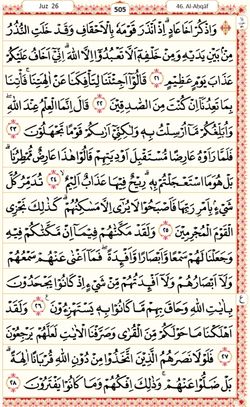 Juz 26 505 46. Al-Aḥqāf
وَاذْكُرْ اَخَا عَادٍۗ اِذْ اَنْذَرَ قَوْمَهٗ بِالْاَحْقَافِ وَقَدْ خَلَتِ النُّذُرُ
مِنْۢ بَيْنِ يَدَيْهِ وَمِنْ خَلْفِهٖٓ اَلَّا تَعْبُدُوْٓا اِلَّا اللّٰهَ ۗاِنِّيْٓ اَخَافُ عَلَيْكُمْ
عَذَابَ يَوْمٍ عَظِيْمٍ ٢١ قَالُوْٓا اَجِئْتَنَا لِتَأْفِكَنَا عَنْ اٰلِهَتِنَاۚ فَأْتِنَا
بِمَا تَعِدُنَآ اِنْ كُنْتَ مِنَ الصّٰدِقِيْنَ ٢٢ قَالَ اِنَّمَا الْعِلْمُ عِنْدَ اللّٰهِ ۖ
وَاُبَلِّغُكُمْ مَّآ اُرْسِلْتُ بِهٖ وَلٰكِنِّيْٓ اَرٰىكُمْ قَوْمًا تَجْهَلُوْنَ ٢٣
فَلَمَّا رَاَوْهُ عَارِضًا مُّسْتَقْبِلَ اَوْدِيَتِهِمْ قَالُوْا هٰذَا عَارِضٌ مُّمْطِرُنَا ۗ
بَلْ هُوَ مَا اسْتَعْجَلْتُمْ بِهٖ ۗرِيْحٌ فِيْهَا عَذَابٌ اَلِيْمٌ ٢٤ تُدَمِّرُ كُلَّ
شَيْءٍۢ بِاَمْرِ رَبِّهَا فَاَصْبَحُوْا لَا يُرٰىٓ اِلَّا مَسٰكِنُهُمْۗ كَذٰلِكَ نَجْزِى
الْقَوْمَ الْمُجْرِمِيْنَ ٢٥ وَلَقَدْ مَكَّنّٰهُمْ فِيْمَآ اِنْ مَّكَّنّٰكُمْ فِيْهِ
وَجَعَلْنَا لَهُمْ سَمْعًا وَّاَبْصَارًا وَّاَفْـِٕدَةًۖ فَمَآ اَغْنٰى عَنْهُمْ سَمْعُهُمْ
وَلَآ اَبْصَارُهُمْ وَلَآ اَفْـِٕدَتُهُمْ مِّنْ شَيْءٍ اِذْ كَانُوْا يَجْحَدُوْنَ
بِاٰيٰتِ اللّٰهِ وَحَاقَ بِهِمْ مَّا كَانُوْا بِهٖ يَسْتَهْزِءُوْنَ ٢٦ وَلَقَدْ
اَهْلَكْنَا مَا حَوْلَكُمْ مِّنَ الْقُرٰى وَصَرَّفْنَا الْاٰيٰتِ لَعَلَّهُمْ يَرْجِعُوْنَ
٢٧ فَلَوْلَا نَصَرَهُمُ الَّذِيْنَ اتَّخَذُوْا مِنْ دُوْنِ اللّٰهِ قُرْبَانًا اٰلِهَةً ۗ
بَلْ ضَلُّوْا عَنْهُمْۚ وَذٰلِكَ اِفْكُهُمْ وَمَا كَانُوْا يَفْتَرُوْنَ ٢٨